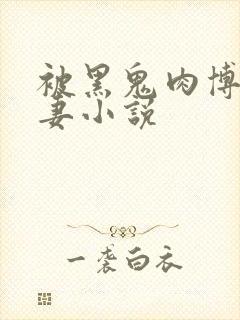 被黑鬼肉博
妻小说
一袭白衣